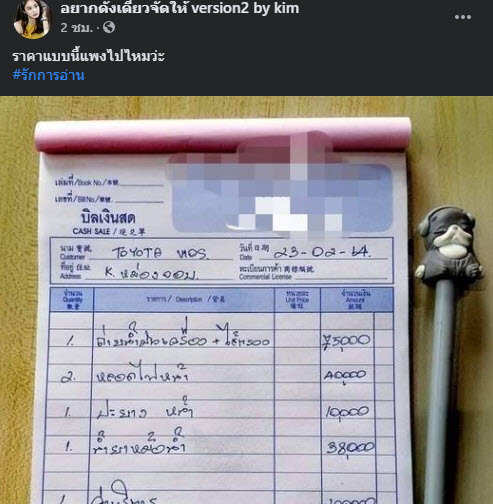 อยากดังเดี๋ยวจัดให้ version2 by kim
2 ชม.
ราคาแบบนี้แพงไปไหมว่ะ
#รักการอ่าน
เล่มที่/Book No./本號
เลขที่/Bill No./號碼
บิลเงินสด
CASH SALE / 現兌單
นาม 寶號 Customer TOYOTA
วันที่ 日期 Date 23-02-64
ที่อยู่ 住址 Address K. หล่อจอม.
ทะเบียนการค้า 商標編號 Commercial License
จำนวน Quantity 數量
รายการ / Description / 貨名
หน่วยละ Unit Price 單位
จำนวนเงิน Amount 銀碼
1. ถ่ายน้ำมันเครื่อง + ไส้กรอง 75,000
2. หลอดไฟหน้า 40,000
1. ประยาง หน้า 10,000
1. น้ำยาหม้อน้ำ 38,000
ค่าบริการ